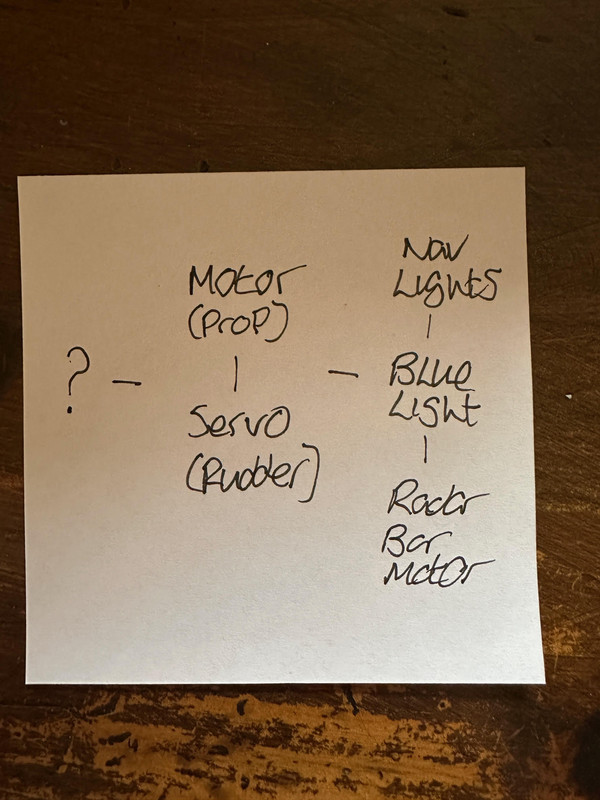 Nav
Lights
Motor
(Prop)
? -
Servo
(Rudder)
Blue
Light
Radar
Bar
Motor